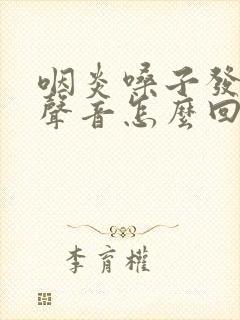 咽炎嗓子發
聲音怎麼回
李育權